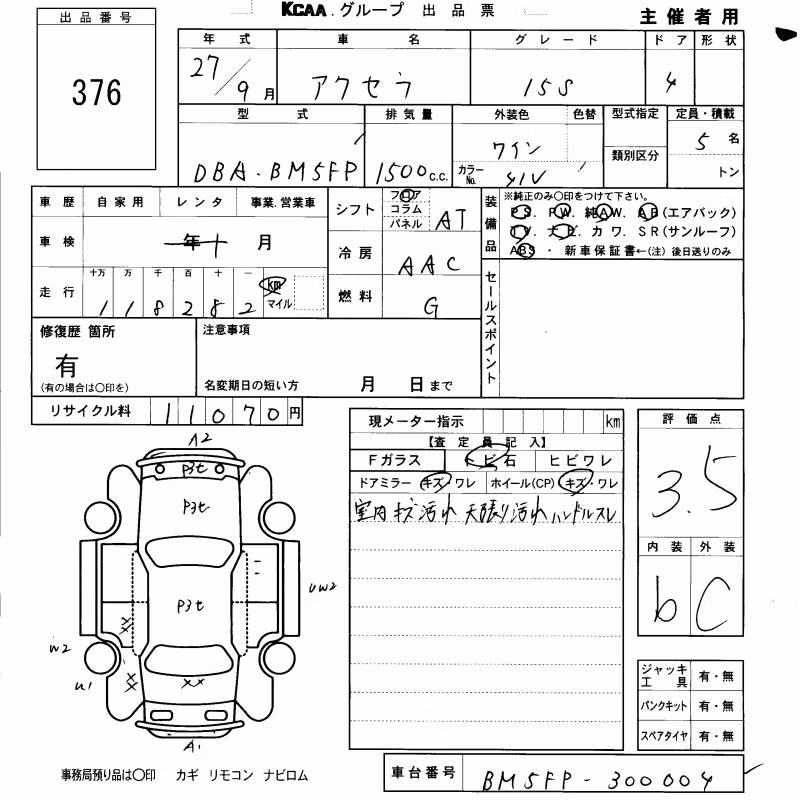 KCAA.グループ 出品票
主催者用
出品番号
376
年式 車名 グレード ドア 形状
27/9月 アクセラ 15S 4
型式 排気量 外装色 色替 型式指定 定員・積載
類別区分
DBA-BM5FP 1500c.c. ワイン カラーNo. 41V 5名
トン
車歴 自家用 レンタ 事業.営業車
車検 年 十 月
走行 十万 万 千 百 十 一
118282 km マイル
シフト フロア コラム パネル AT
冷房 AAC
燃料 G
装備品
※純正のみ〇印をつけて下さい。
PS. PW. 純AW. AB(エアバック)
TV. ナビ. カワ. SR(サンルーフ)
ABS・新車保証書←(注)後日送りのみ
セールスポイント
修復歴 箇所
有
(有の場合は〇印を)
注意事項
名変期日の短い方 月 日まで
リサイクル料 11070円
現メーター指示 km
【査定員記入】
Fガラス トビ石 ヒビワレ
ドアミラー キズ・ワレ ホイール(CP) キズ・ワレ
室内キズ汚れ 天張り汚れ ハンドルスレ
評価点
3.5
内装 外装
b C
A2
P3t
P3t
UW2
P3t
XX
W2
U1
XX
XX
A1
ジャッキ工具 有・無
パンクキット 有・無
スペアタイヤ 有・無
事務局預り品は〇印 カギ リモコン ナビロム
車台番号 BM5FP-300004